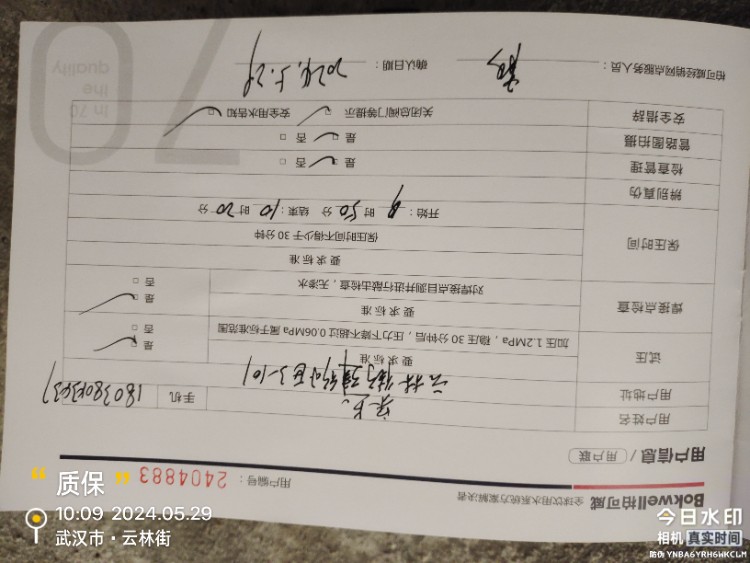 Bokwell柏可威 全球饮用水系统方案解决者
用户编号： 2404883
用户信息 / 用户联
用户姓名
手机 18038083637
用户地址 云林街
试压
要求标准
加压1.2MPa，稳压30分钟后，压力下降不超过0.06MPa属于标准范围
是
否
焊接点检查
要求标准
对焊接点目测并进行敲击检查，无渗水
是
否
保压时间
要求标准
保压时间不得少于30分钟
开始：9时50分 结束：10时20分
辨别真伪
检查管理 是 否
管路图拍摄 是 否
安全措辞 关闭总阀门等提示 安全用水告知
柏可威经销网点服务人员：
确认日期： 2024.5.29
In 70
the
quality
70
质保
10:09 2024.05.29
武汉市·云林街
今日水印
相机 真实时间
防伪 YNBA6YRH6WKCLM